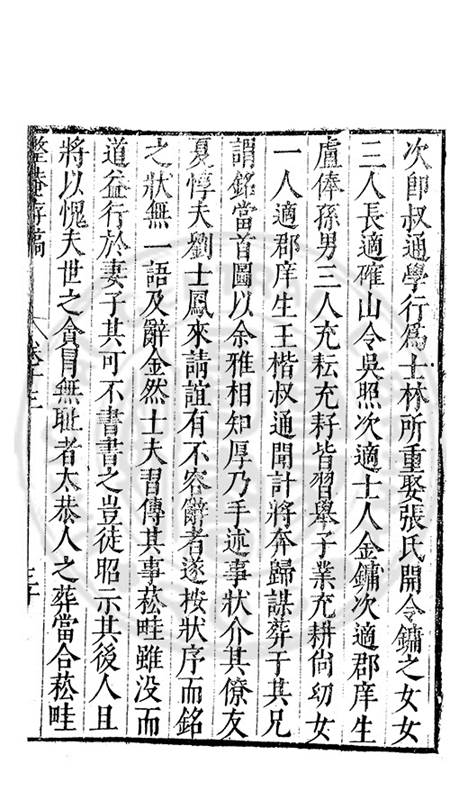 次即叔通學行爲士林所重娶張氏開令鏞之女女
三人長適確山令吳照次適士人金鏞次適郡庠生
盧俸孫男三人充耘充耔皆習舉子業充耕尙幼女
一人適郡庠生王楷叔通聞計將奔歸謀葬于其兄
謂銘當首圖以余雅相知厚乃手述事狀介其僚友
夏惇夫劉士鳳來請誼有不容辭者遂按狀序而銘
之狀無一語及辭金然士夫習傳其事菘畦雖没而
道益行於妻子其可不書書之豈徒昭示其後人且
將以愧夫世之貪冒無耻者太恭人之葬當合菘畦
整菴存稿 卷十三 三十